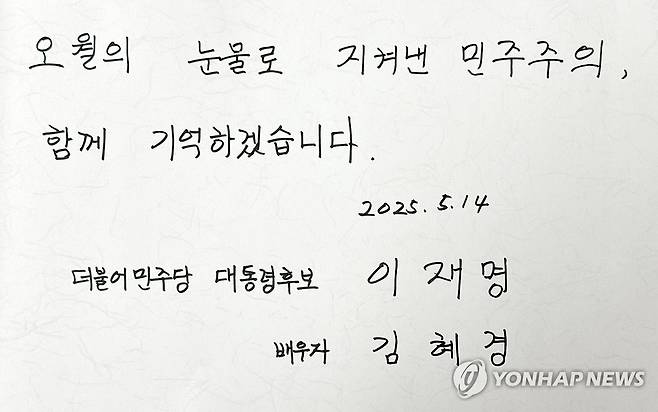 오월의 눈물로 지켜낸 민주주의,
함께 기억하겠습니다.
2025. 5. 14
더불어민주당 대통령후보 이재명
배우자 김혜경
YONHAP NEWS